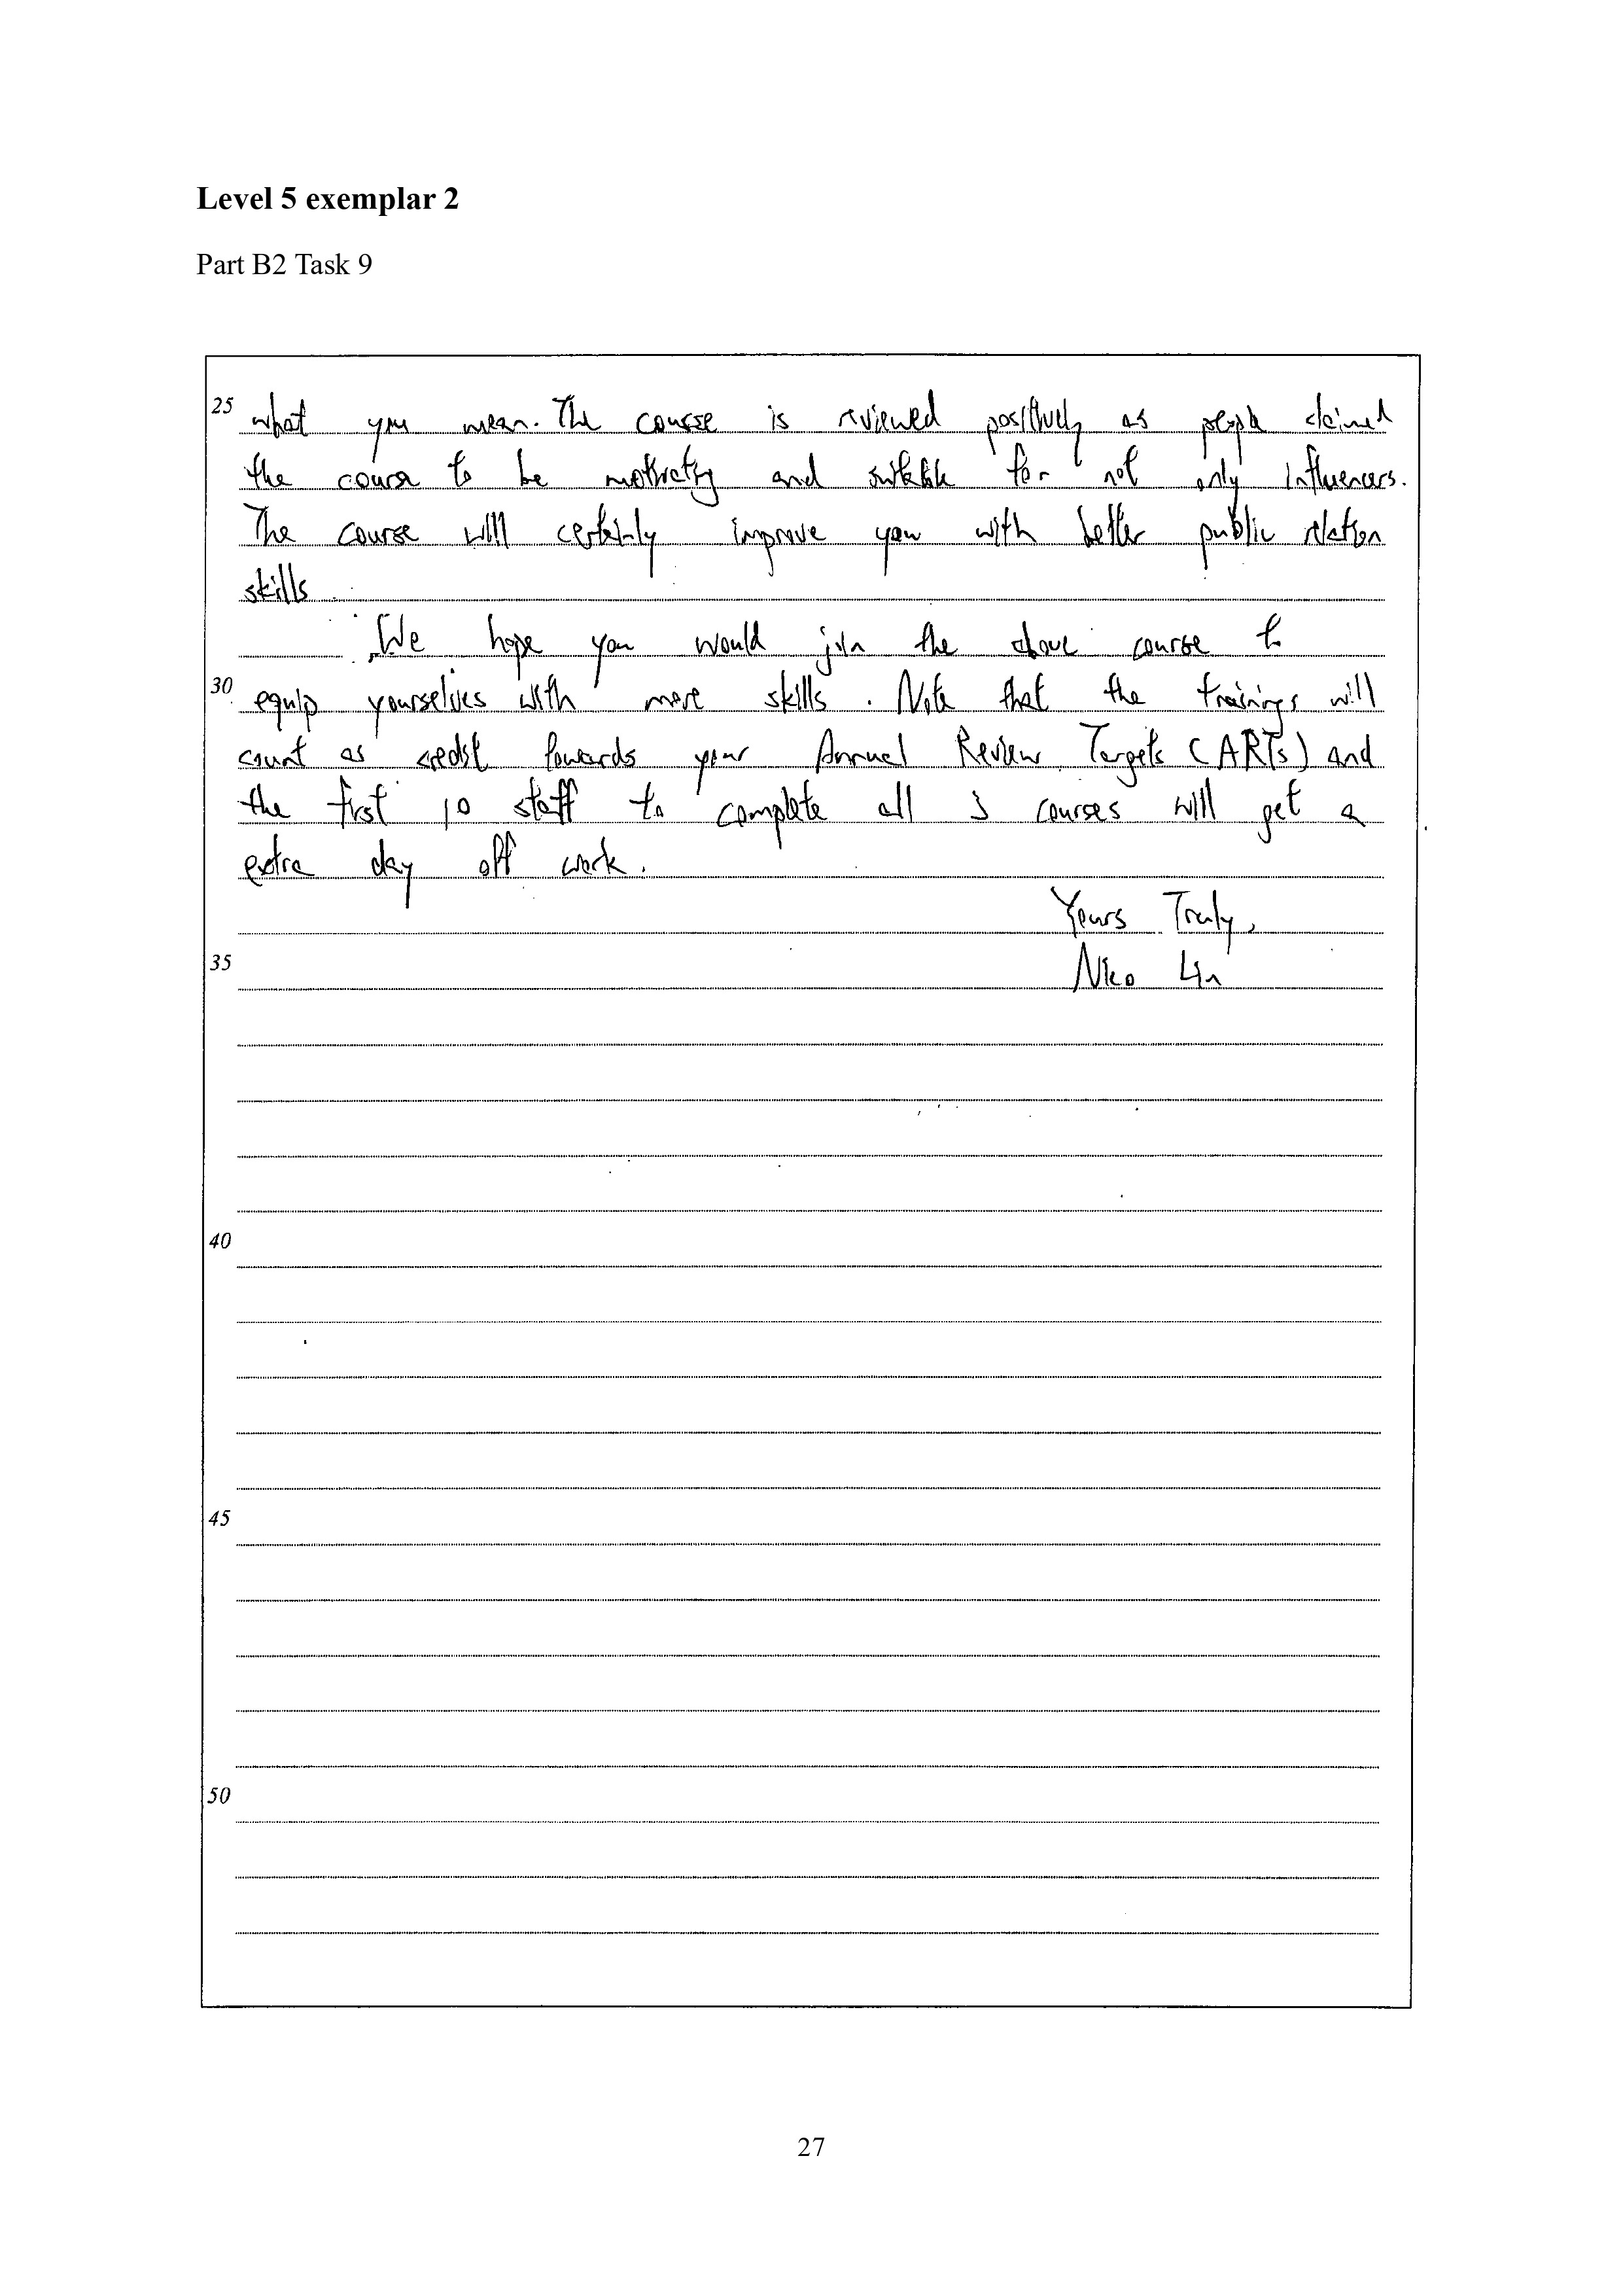 Level 5 exemplar 2
Part B2 Task 9
25 what you mean. The course is reviewed positively as people claimed
the course to be motivating and suitable for not only influencers.
The course will certainly improve you with better public relation
skills.
We hope you would join the above course to
30 equip yourselves with more skills. Note that the trainings will
count as credit towards your Annual Review Targets (ARTs) and
the first 10 staff to complete all 3 courses will get a
extra day off work.
Yours Truly,
35 Nico Lin
40
45
50
27